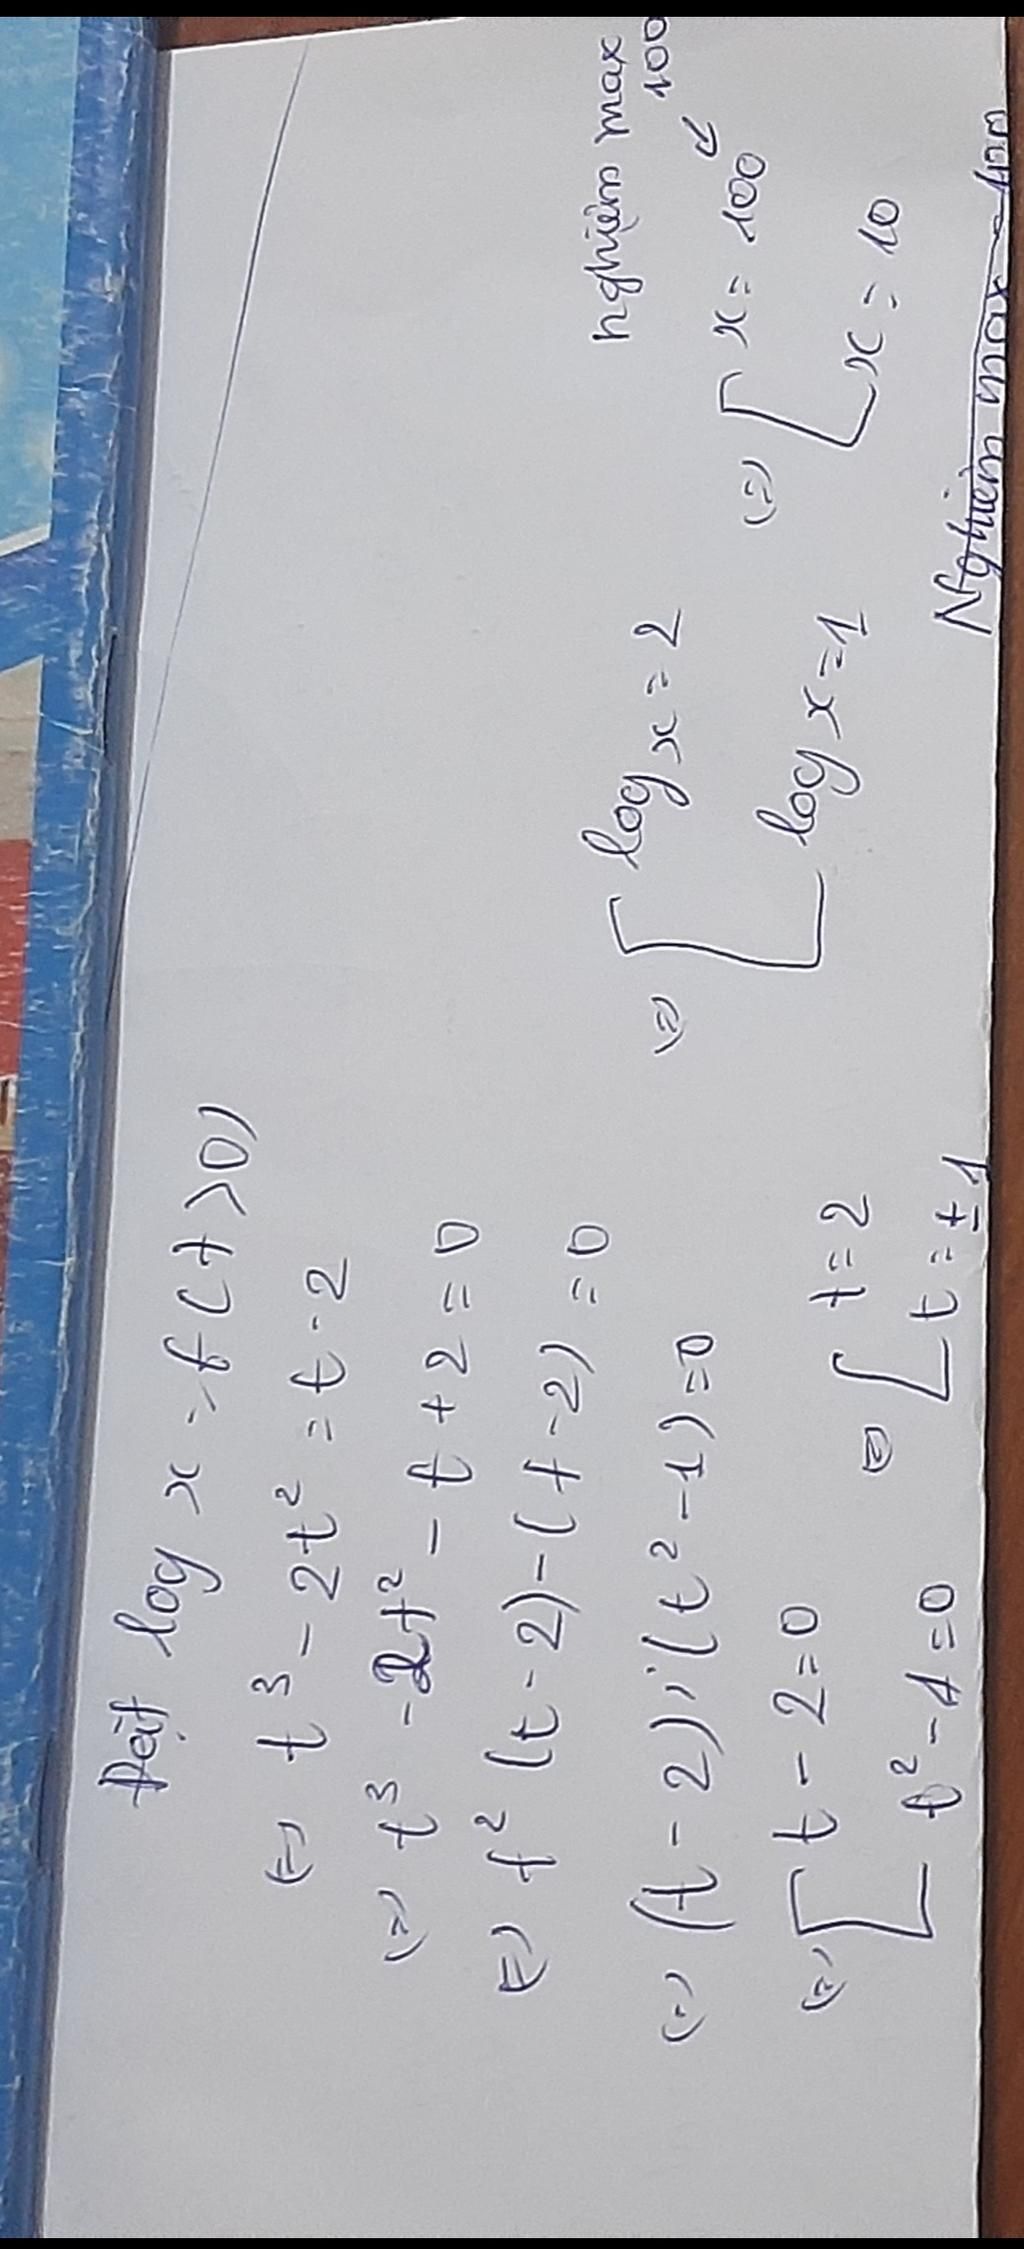 Đặt log x = t (t > 0)
(=) t³ - 2t² = t - 2
(=) t³ - 2t² - t + 2 = 0
(=) t² (t - 2) - (t - 2) = 0
(=) (t - 2).(t² - 1) = 0
(=) [ t - 2 = 0
t² - 1 = 0
(=) [ t = 2
t = ± 1
(=) [ log x = 2
log x = 1
(=) [ x = 100
x = 10
nghiệm max
100
Nghiệm max = 100